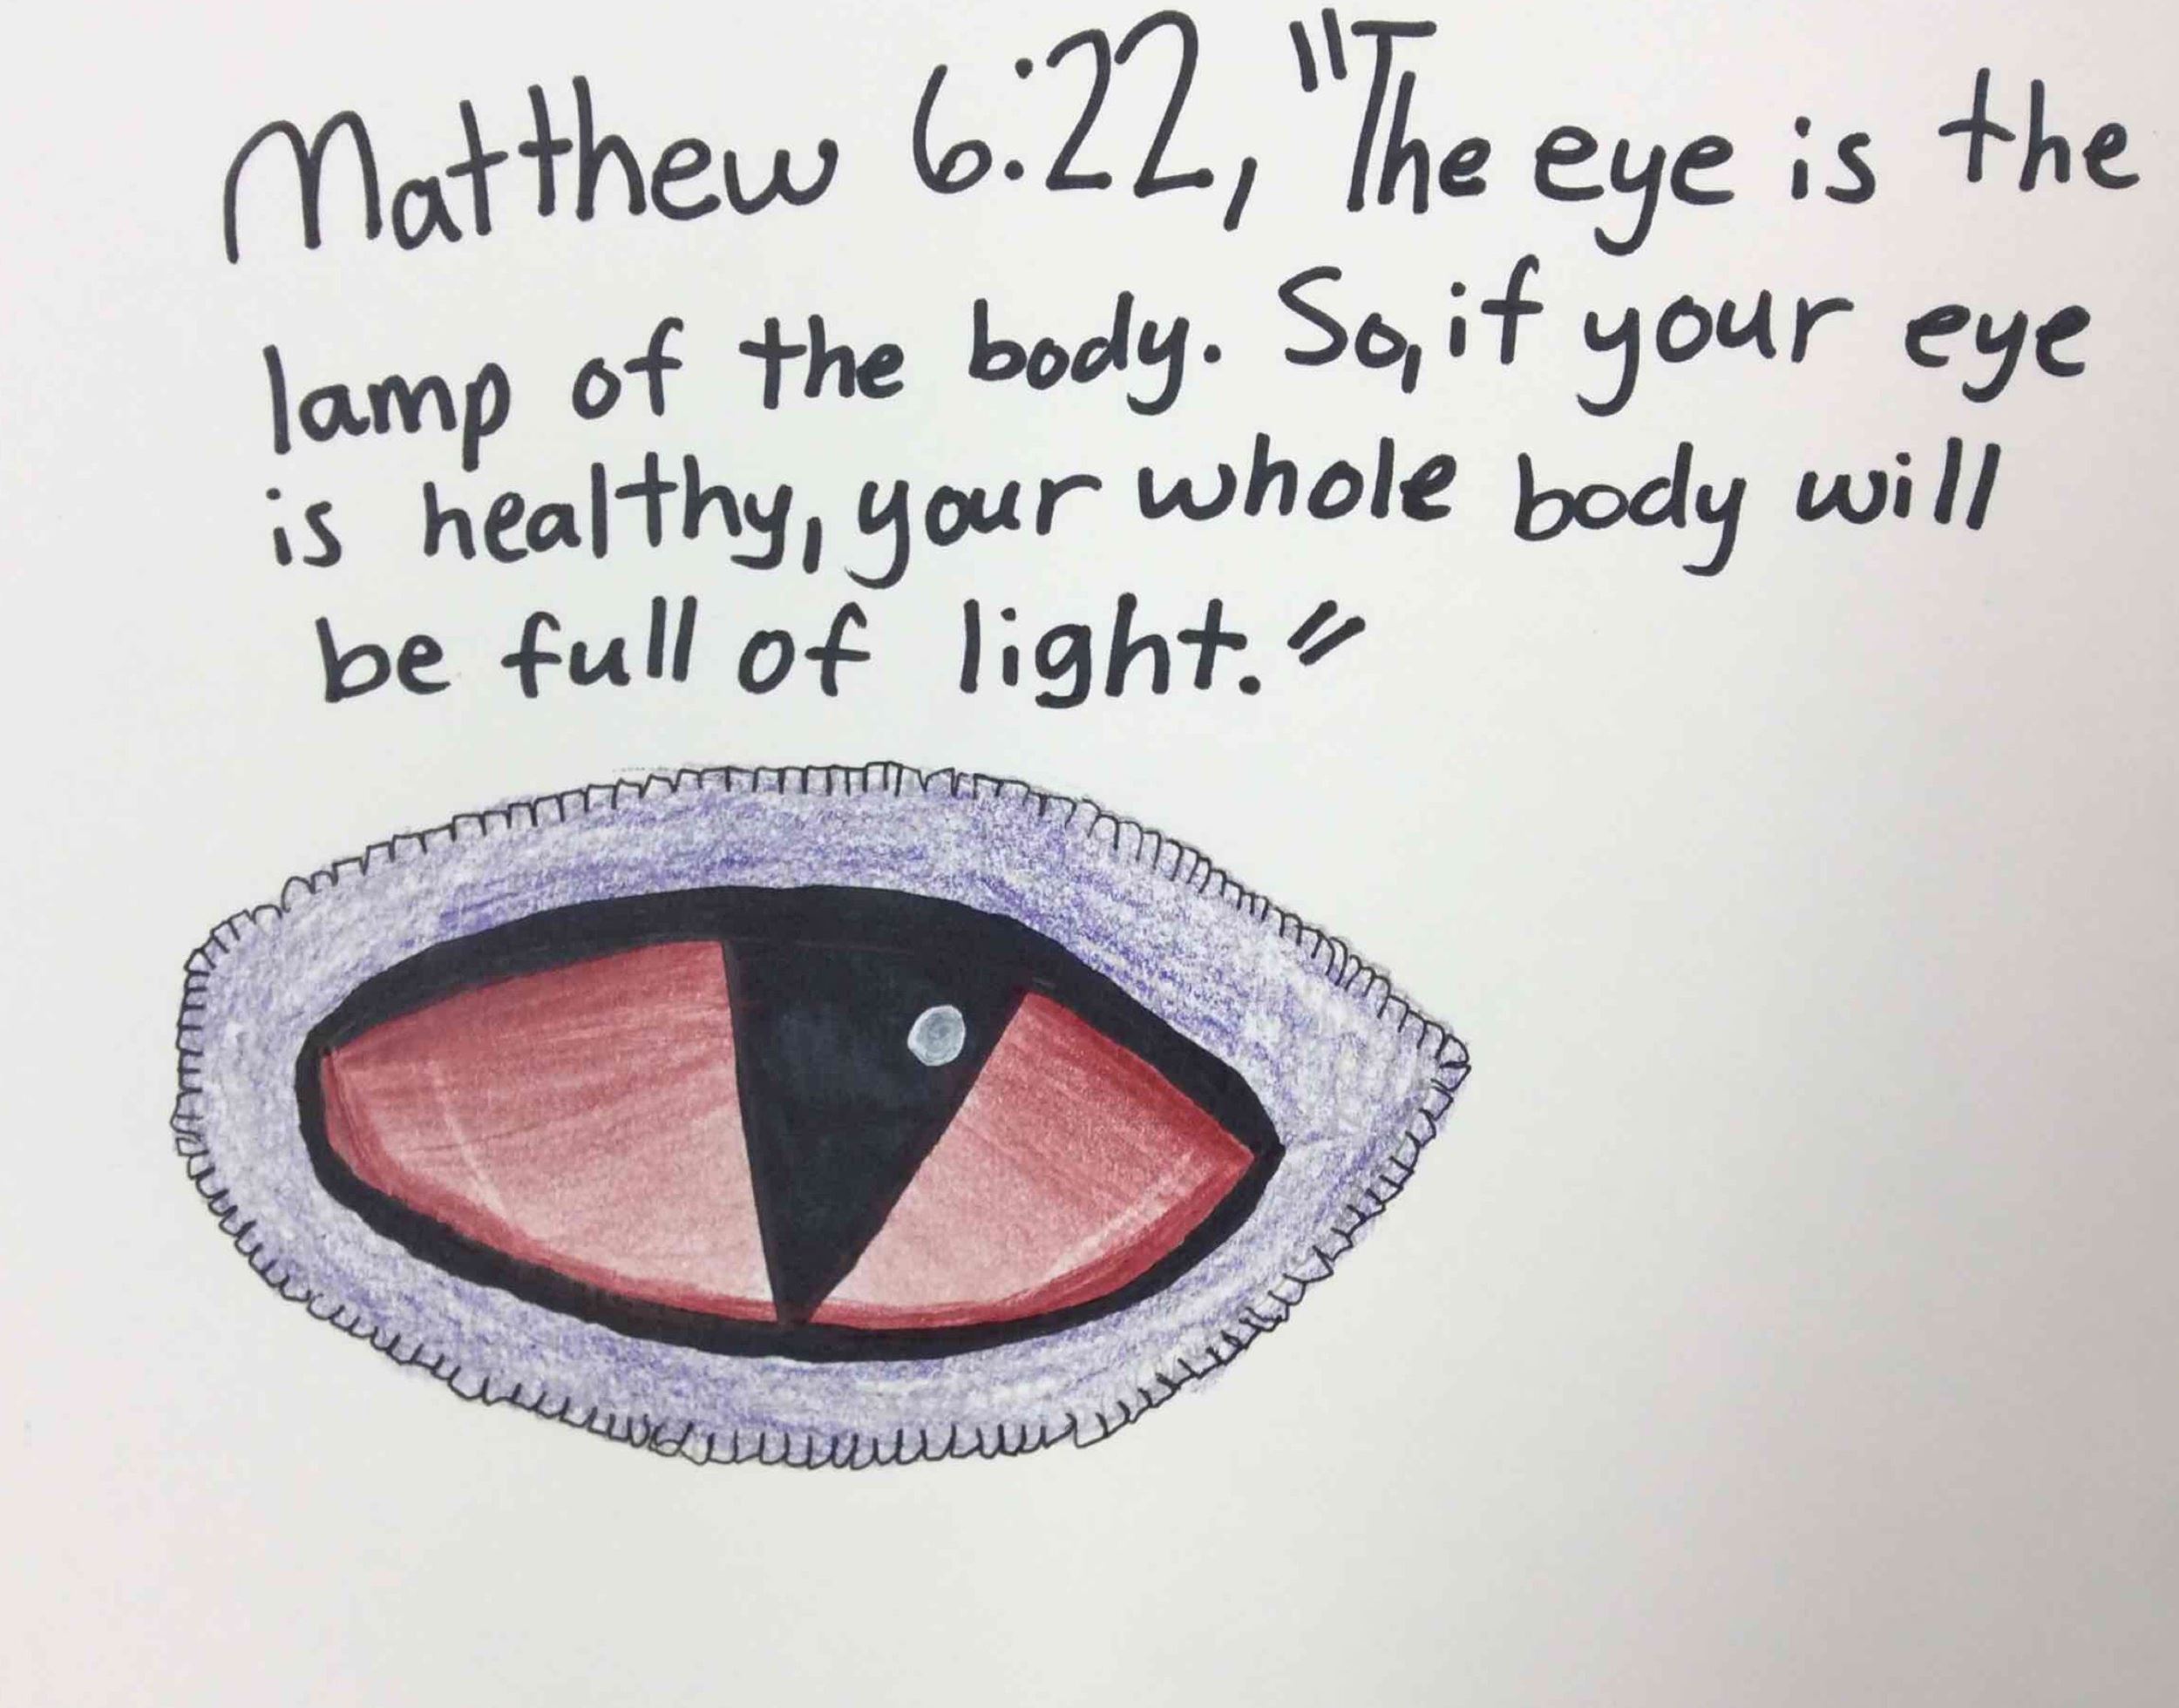 Matthew 6:22, "The eye is the
lamp of the body. So, if your eye
is healthy, your whole body will
be full of light."